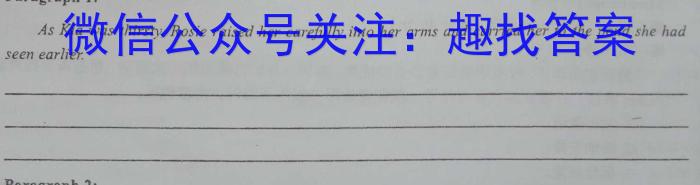 Paragraph 1:
As was thirsty, Rosie raised her carefully into her arms and she had
微信公众号关注：趣找答案
seen earlier.
Paragraph 2: